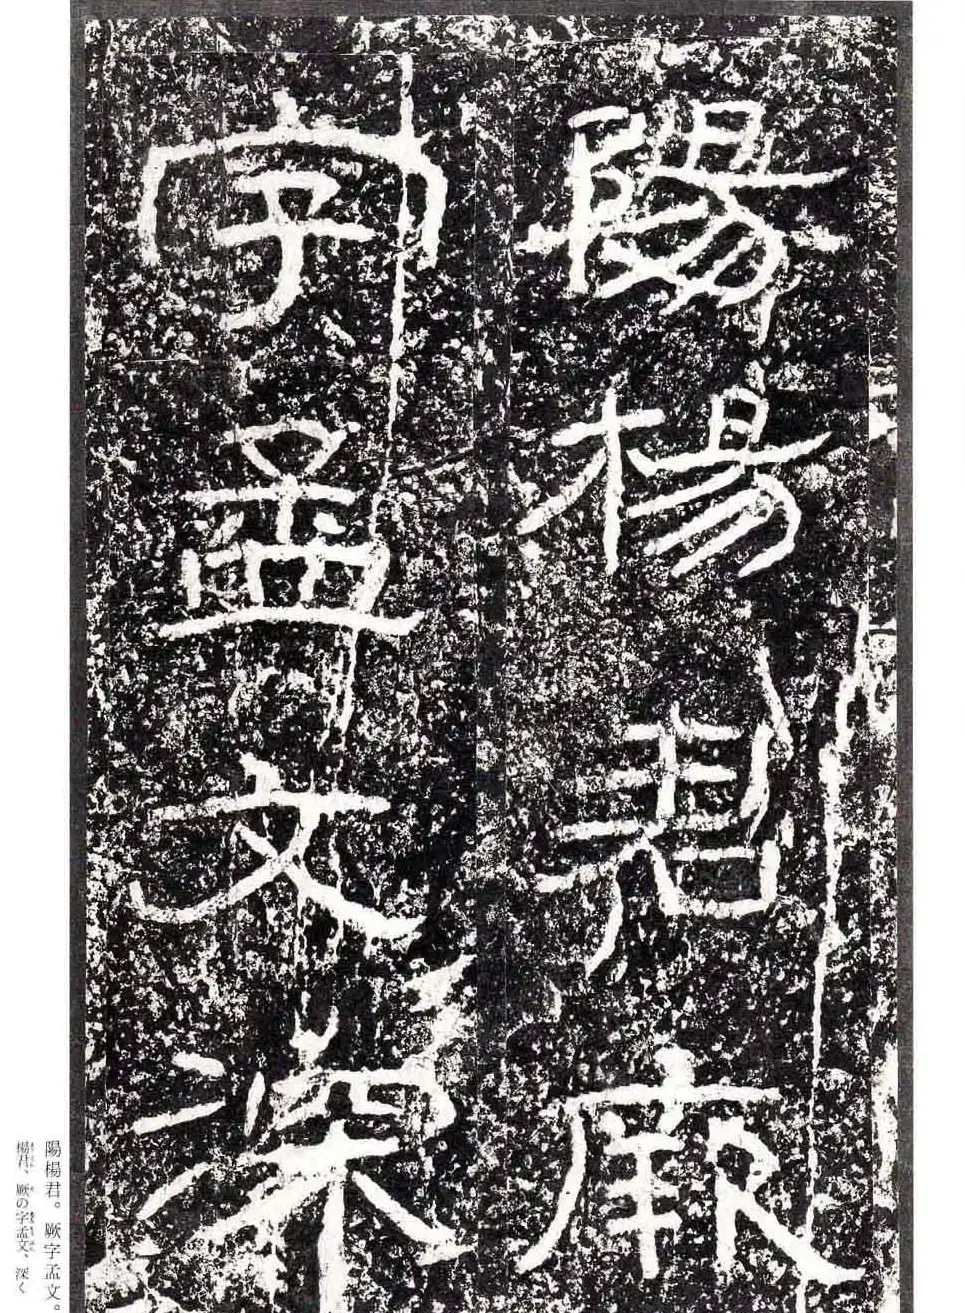 陽楊君厥
字孟文深
陽楊君。厥字孟文。
楊君、厥の字孟文、深く